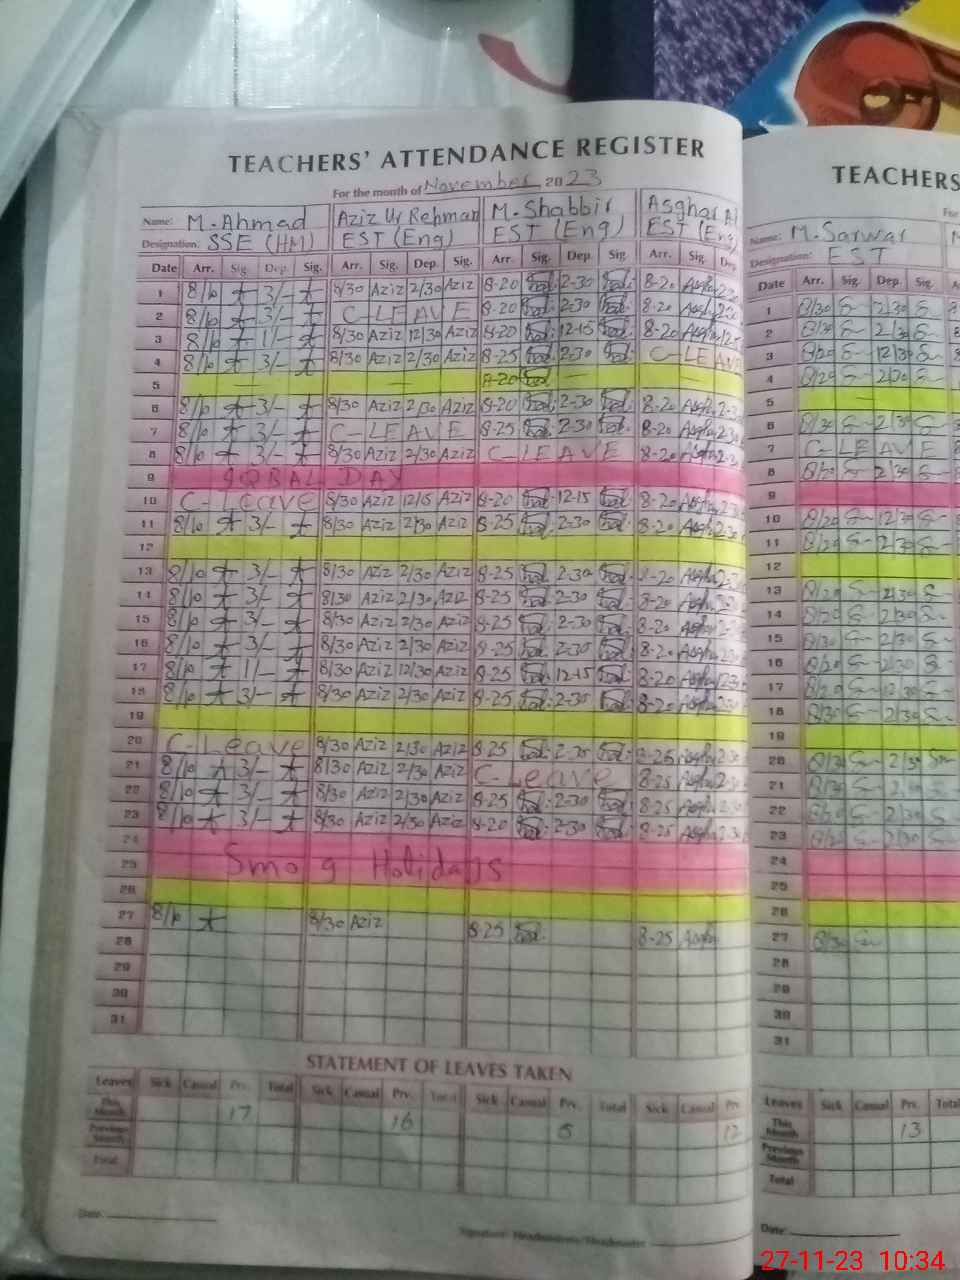 TEACHERS' ATTENDANCE REGISTER
For the month of November 2023
Name: M. Ahmad Aziz Ur Rehman M. Shabbir Asghar Al
Designation: SSE (HM) EST (Eng) EST (Eng) EST (Eng)
Date Arr. Sig. Dep. Sig. Arr. Sig. Dep. Sig. Arr. Sig. Dep. Sig. Arr. Sig. Dep.
1 8/10 3/- 8/30 Aziz 2/30 Aziz 8-20 2-30 8-20
2 8/10 3/- C-LEAVE 8-20 2-30 8-20
3 8/10 1/- 8/30 Aziz 12/30 Aziz 8-20 12-15 8-20
4 8/10 3/- 8/30 Aziz 2/30 Aziz 8-25 2-30 C-LEAV
5 — — 8-20 — —
6 8/10 3/- 8/30 Aziz 2/30 Aziz 8-20 2-30 8-20
7 8/10 3/- C-LEAVE 8-25 2-30 8-20
8 8/10 3/- 8/30 Aziz 2/30 Aziz C-LEAVE 8-20
9 IQBAL DAY
10 C-Leave 8/30 Aziz 12/15 Aziz 8-20 12-15 8-20
11 8/10 3/- 8/30 Aziz 2/30 Aziz 8-25 2-30 8-20
12
13 8/10 3/- 8/30 Aziz 2/30 Aziz 8-25 2-30 8-20
14 8/10 3/- 8/30 Aziz 2/30 Aziz 8-25 2-30 8-20
15 8/10 3/- 8/30 Aziz 2/30 Aziz 8-25 2-30 8-20
16 8/10 3/- 8/30 Aziz 2/30 Aziz 8-25 2-30 8-20
17 8/10 1/- 8/30 Aziz 12/30 Aziz 8-25 12-15 8-20
18 8/10 3/- 8/30 Aziz 2/30 Aziz 8-25 2-30 8-20
19
20 C-Leave 8/30 Aziz 2/30 Aziz 8-25 2-30 8-25
21 8/10 3/- 8/30 Aziz 2/30 Aziz C-Leave 8-25
22 8/10 3/- 8/30 Aziz 2/30 Aziz 8-25 2-30 8-25
23 8/10 3/- 8/30 Aziz 2/30 Aziz 8-20 2-30 8-25
24
25 Smog Holidays
26
27 8/10 8/30 Aziz 8-25 8-25
28
29
30
31
STATEMENT OF LEAVES TAKEN
Leaves Sick Casual Prv. Total Sick Casual Prv. Total Sick Casual Prv. Total Sick Casual Prv.
This Month 17 16 12
Previous Month
Total
Date:
Signature: Headmistress/Headmaster
TEACHERS
For
Name: M. Sarwar
Designation: EST
Date Arr. Sig. Dep. Sig.
1 8/30 2/30
2 8/30 2/30
3 8/20 12/30
4 8/20 2/30
5 —
6 8/30 2/30
7 C-LEAVE
8 8/20 2/30
9
10 8/20 12/30
11 8/20 2/30
12
13 8/20 2/30
14 8/20 2/30
15 8/30 2/30
16 8/20 2/30
17 8/20 12/30
18 8/30 2/30
19
20 8/30 2/30
21 8/30 2/30
22 8/20 2/30
23 8/20 2/30
24
25
26
27 8/30
28
29
30
31
Leaves Sick Casual Prv. Total
This Month 13
Previous Month
Total
Date:
27-11-23 10:34